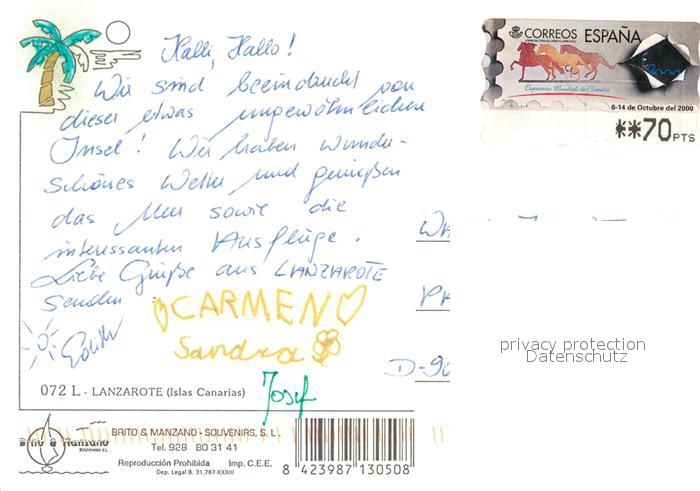 Halli, Hallo!
Wir sind beeindruckt von
dieser etwas ungewöhnlichen
Insel! Wir haben wunder-
schönes Wetter und genießen
das Meer sowie die
interessanten Ausflüge.
Liebe Grüße aus LANZAROTE
senden
CARMEN
Sandra
Edith
Josef
072 L - LANZAROTE (Islas Canarias)
Brito & Manzano
SOUVENIRS S.L.
BRITO & MANZANO - SOUVENIRS, S. L.
Tel. 928 80 31 41
Reproducción Prohibida Imp. C.E.E.
Dep. Legal B. 31.787-XXXIII
8 423987 130508
CORREOS ESPAÑA
Exposición Mundial de Filatelia
6-14 de Octubre del 2000
**70 PTS
D-90
privacy protection
Datenschutz